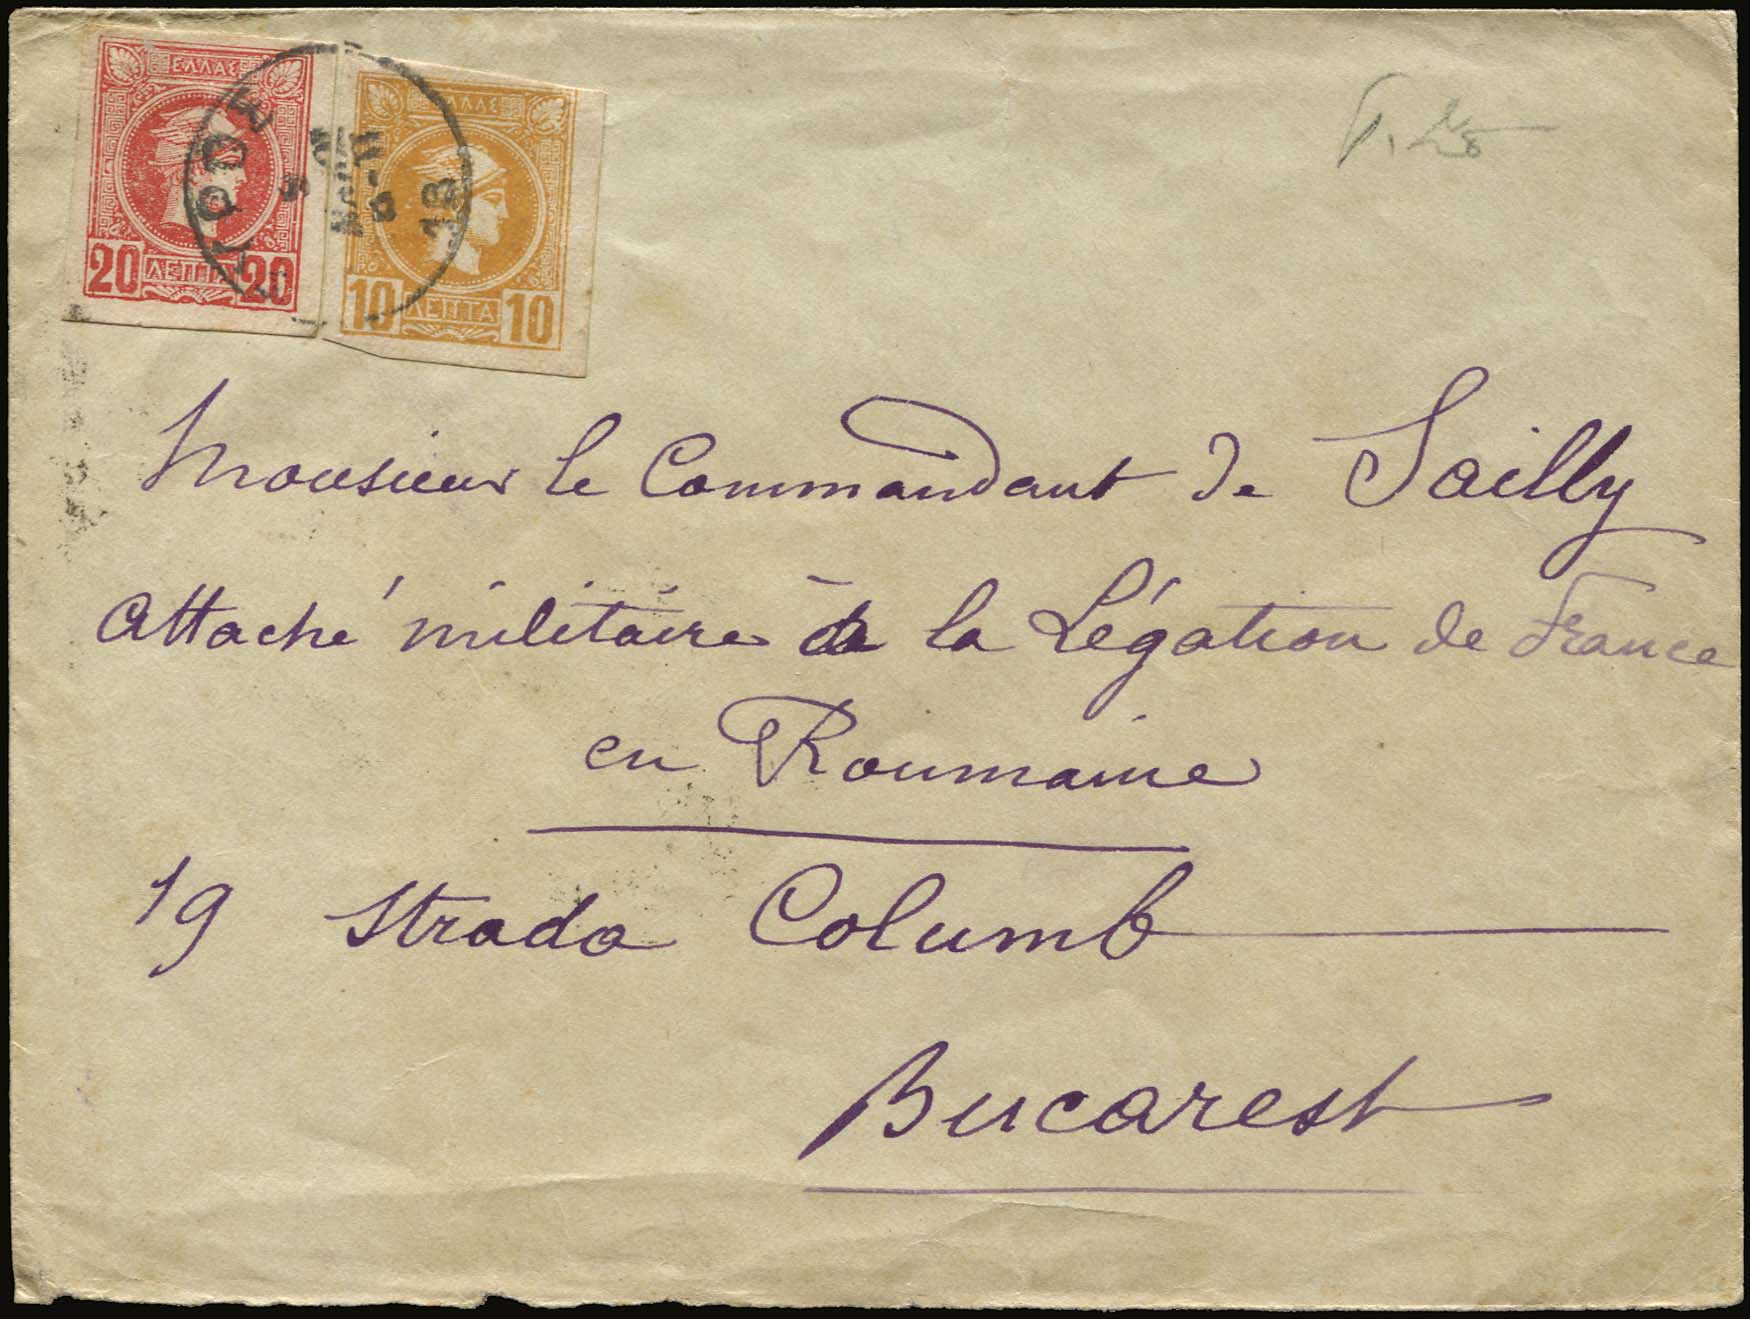 ΕΛΛΑΣ
20 ΛΕΠΤΑ 20
ΕΛΛΑΣ
10 ΛΕΠΤΑ 10
ΥΡΟΣ
Monsieur le Commandant de Sailly
Attaché militaire à la Légation de France
en Roumanie
19 Strada Columb
Bucarest